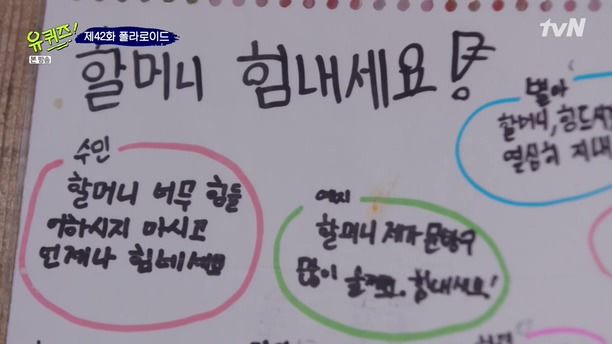 유퀴즈!
제42화 폴라로이드
tvN
본 방송
할머니 힘내세요!
별아
할머니, 힘드시
열심히 지내
수민
할머니 너무 힘들
어하시지 마시고
언제나 힘네세요
예지
할머니 제가 문방구
많이 올게요. 힘내세요!